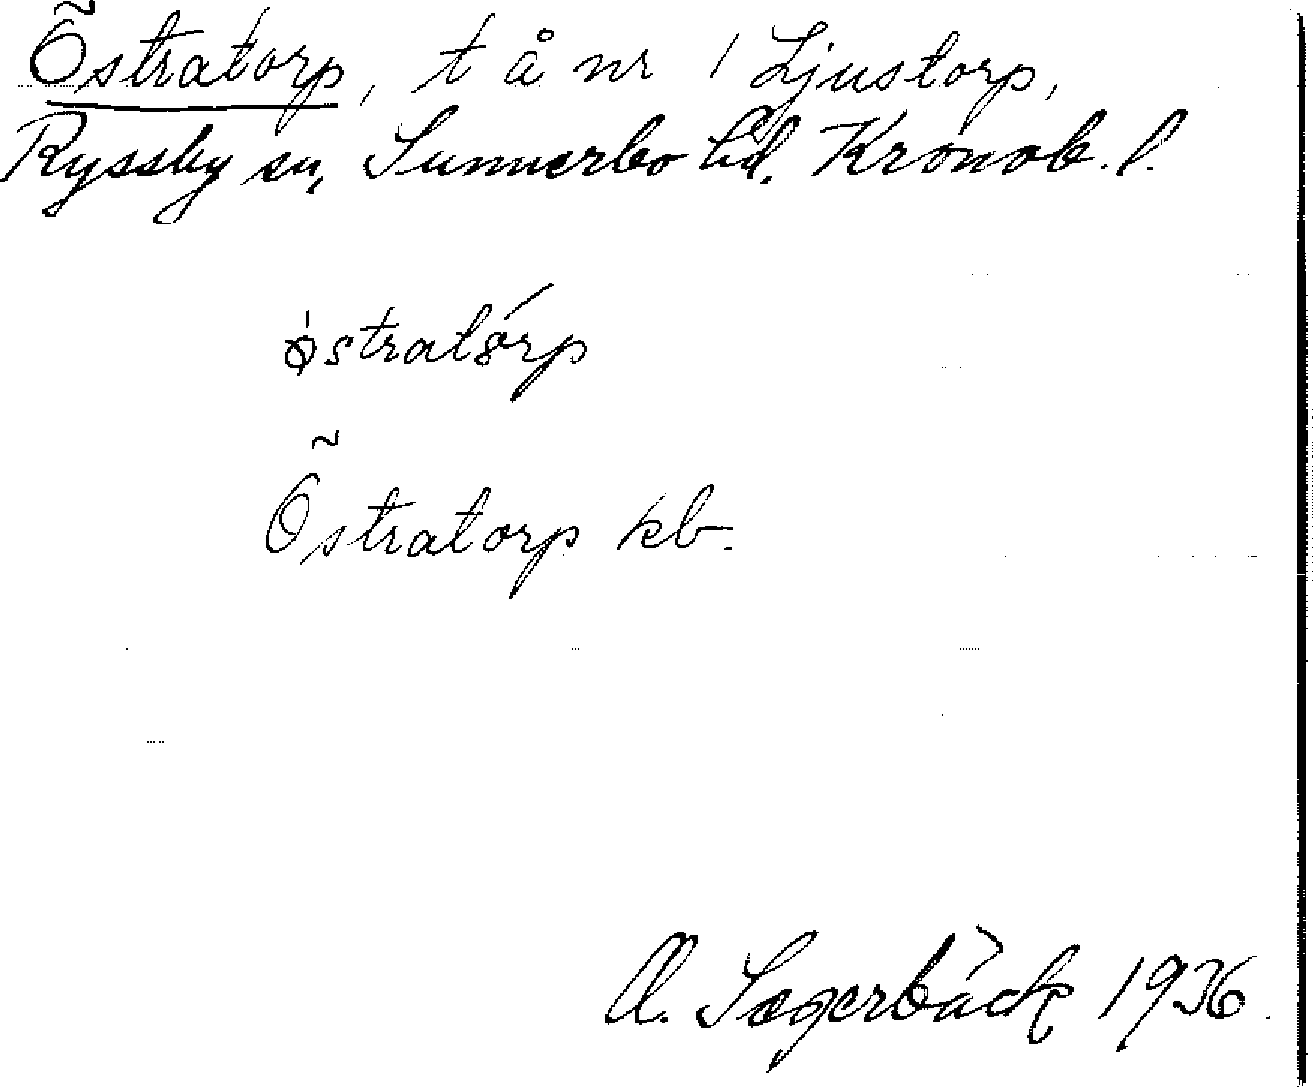 Östratorp, t å nr 1 Ljustorp,
Ryssby sn, Sunnerbo hd. Kronob. l.
östratórp
Östratorp kb.
A. Sagerbäck 1936.